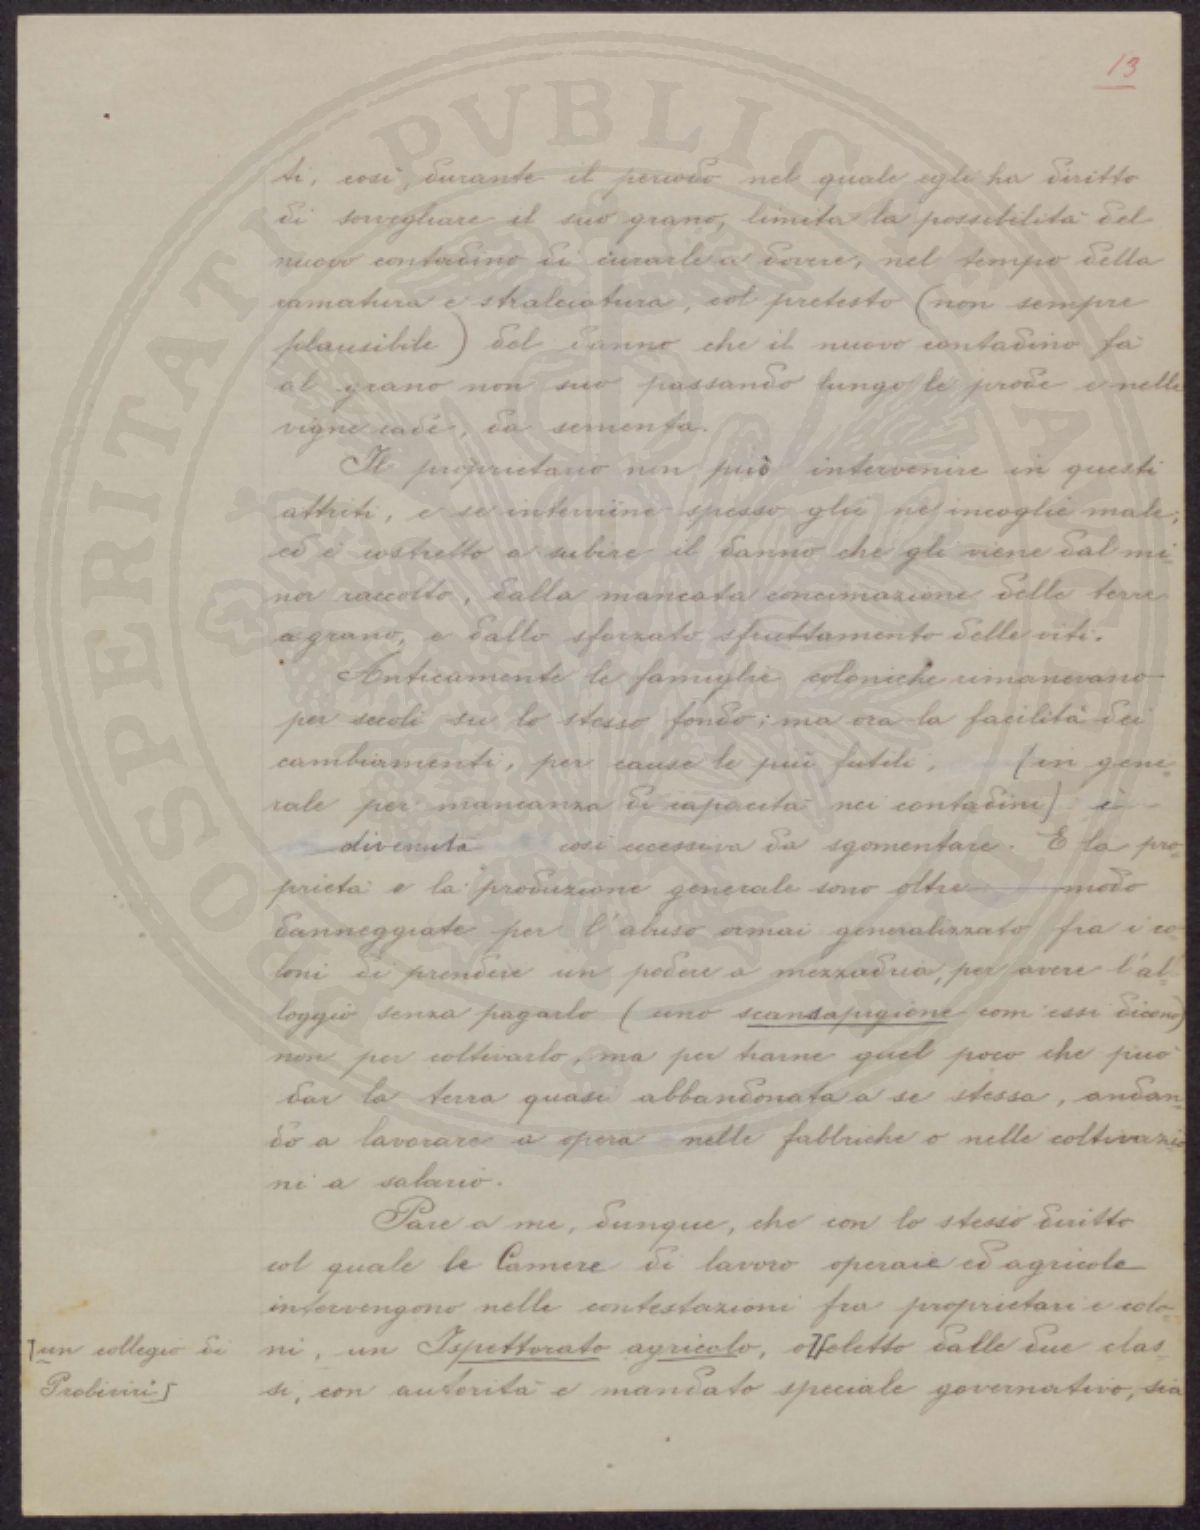 13
ti, così, durante il periodo nel quale egli ha diritto
di sorvegliare il suo grano, limita la possibilità del
nuovo contadino di curarle a dovere, nel tempo della
ramatura e stralciatura, col pretesto (non sempre
plausibile) del danno che il nuovo contadino fa
al grano non suo passando lungo le prode e nelle
vigne cade, da sementa.
Il proprietario non può intervenire in questi
attriti, e se interviene spesso glie ne incoglie male;
ed è costretto a subire il danno che gli viene dal mi-
nor raccolto, dalla mancata concimazione delle terre
a grano, e dallo sforzato sfruttamento delle viti.
Anticamente le famiglie coloniche rimanevano
per secoli su lo stesso fondo; ma ora la facilità dei
cambiamenti, per cause le più futili, (in gene-
rale per mancanza di capacità nei contadini) è
divenuta così eccessiva da sgomentare. E la pro-
prietà e la produzione generale sono oltre modo
danneggiate per l'abuso ormai generalizzato fra i co-
loni di prendere un podere a mezzadria, per avere l'al-
loggio senza pagarlo (uno scansapigione com'essi dicono)
non per coltivarlo, ma per trarne quel poco che può
dar la terra quasi abbandonata a se stessa, andan-
do a lavorare a opera nelle fabbriche o nelle coltivazio
ni a salario.
Pare a me, dunque, che con lo stesso diritto
col quale le Camere di lavoro operaie ed agricole
intervengono nelle contestazioni fra proprietari e colo-
ni, un Ispettorato agricolo, o eletto dalle due clas-
si, con autorità e mandato speciale governativo, sia
un collegio di
Probiviri
PROSPERITATI PVBLICAE AVGENDAE